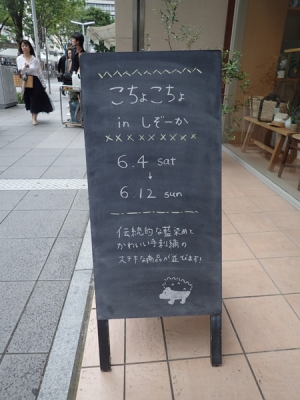 こちょこちょ
in しぞーか
6.4 sat
↓
6.12 sun
伝統的な藍染めと
かわいい手刺繍の
ステキな商品が並びます!